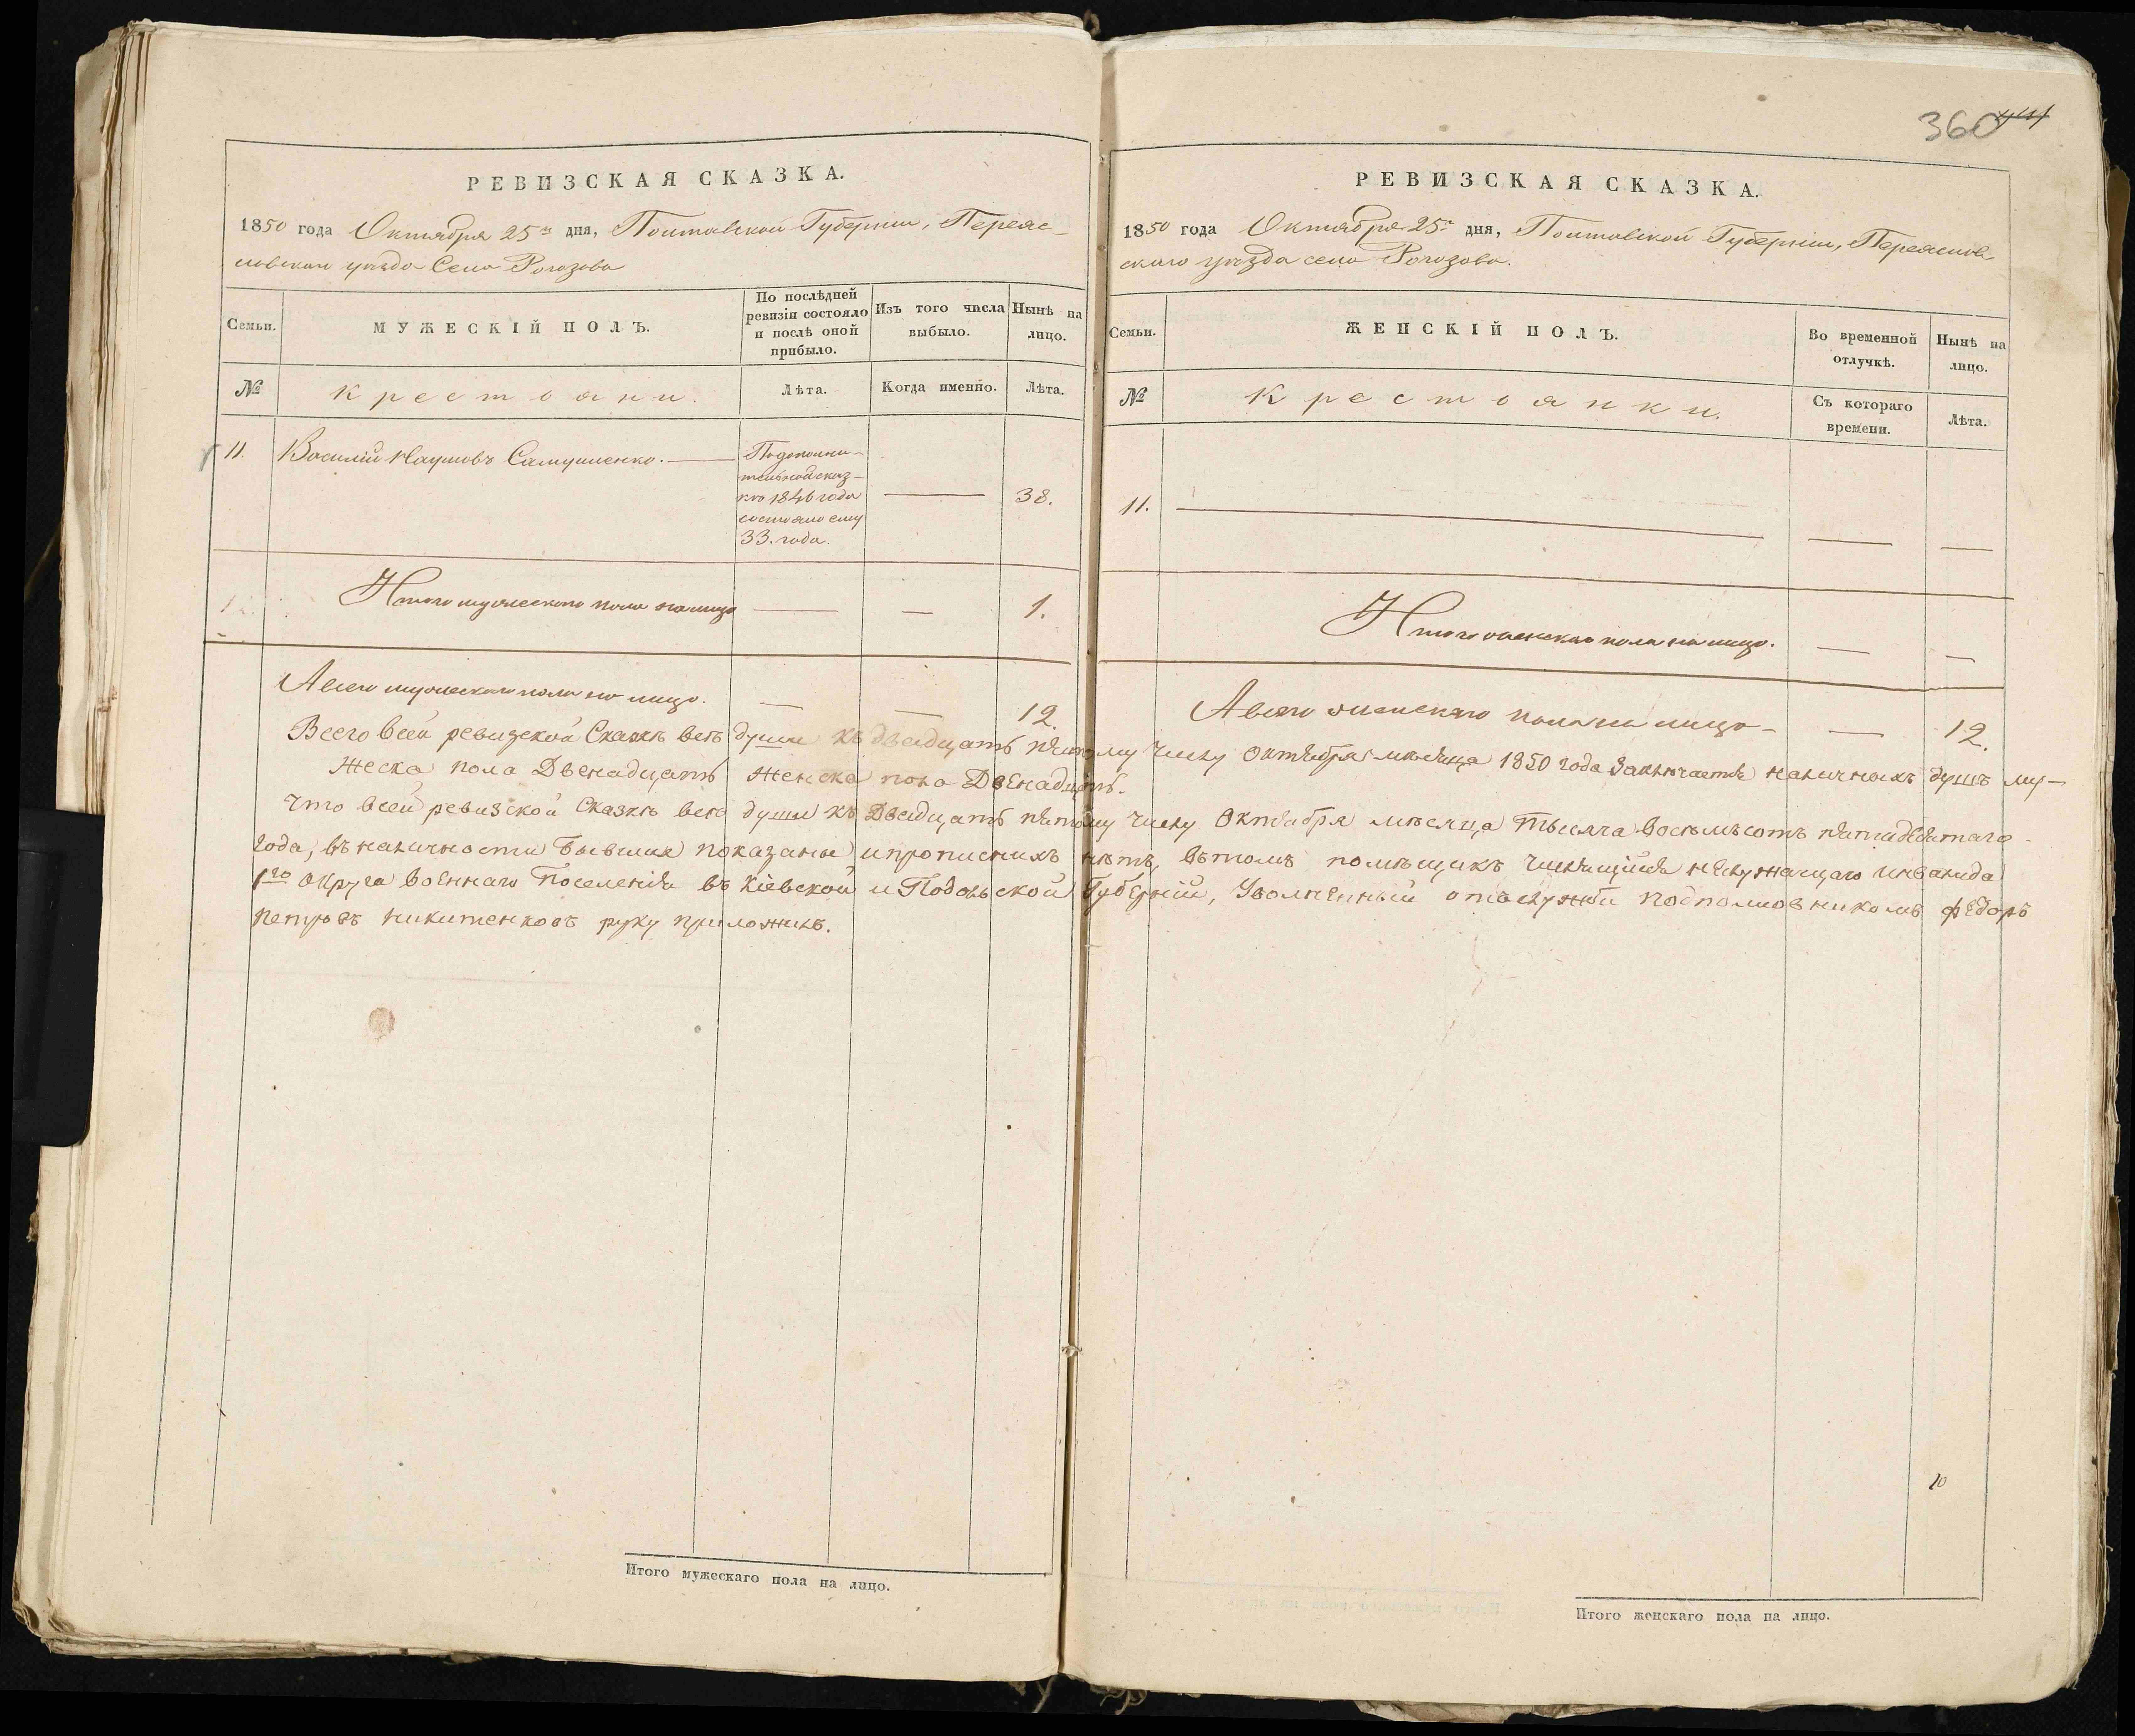 360
РЕВИЗСКАЯ СКАЗКА.
1850 года Октября 25го дня, Полтавской Губерніи, Переяс-
лавскаго уезда Села Рогозова
Семьи.
МУЖЕСКІЙ ПОЛЪ.
По послѣдней
ревизіи состояло
и послѣ оной
прибыло.
Изъ того числа
выбыло.
Нынѣ на
лицо.
№
Крестьяни.
Лѣта.
Когда именно.
Лѣта.
11. Василій Наумовъ Самушенко.
Подополни-
тельной сказ-
ки 1846 года
состояло ему
33. года.
38.
12.
Итого мужескаго пола налицо 1.
А всего мужескаго пола на лицо. 12.
РЕВИЗСКАЯ СКАЗКА.
1850 года Октября 25го дня, Полтавской Губерніи, Переяслав
скаго уезда села Рогозова.
Семьи.
ЖЕНСКІЙ ПОЛЪ.
Во временной
отлучкѣ.
Нынѣ на
лицо.
№
Крестьянки.
Съ котораго
времени.
Лѣта.
11.
Итого женскаго пола на лицо.
А всего женскаго пола на лицо 12.
Всего всей ревизской Сказкѣ всѣ души къ двадцать пятому числу Октября месяца 1850 года Заключается наличныхъ душъ му-
жеска пола Двенадцать женска пола Двенадцать.
Что всей ревизской Сказкѣ всѣ души къ Двадцать пятому числу Октября месяца Тысяча восемьсотъ пятидесятаго
года, въ наличности бывшия показаны ипрописныхъ нѣтъ, вътомъ помѣщикъ неслужащаго инвалида
1го Округа военнаго поселенія въ Кіевской и Подольской Губерній, Уволненный отъ службы подполковникомъ Федоръ
Петровъ Никитенковъ руку приложилъ.
10
Итого мужескаго пола на лицо.
Итого женскаго пола на лицо.